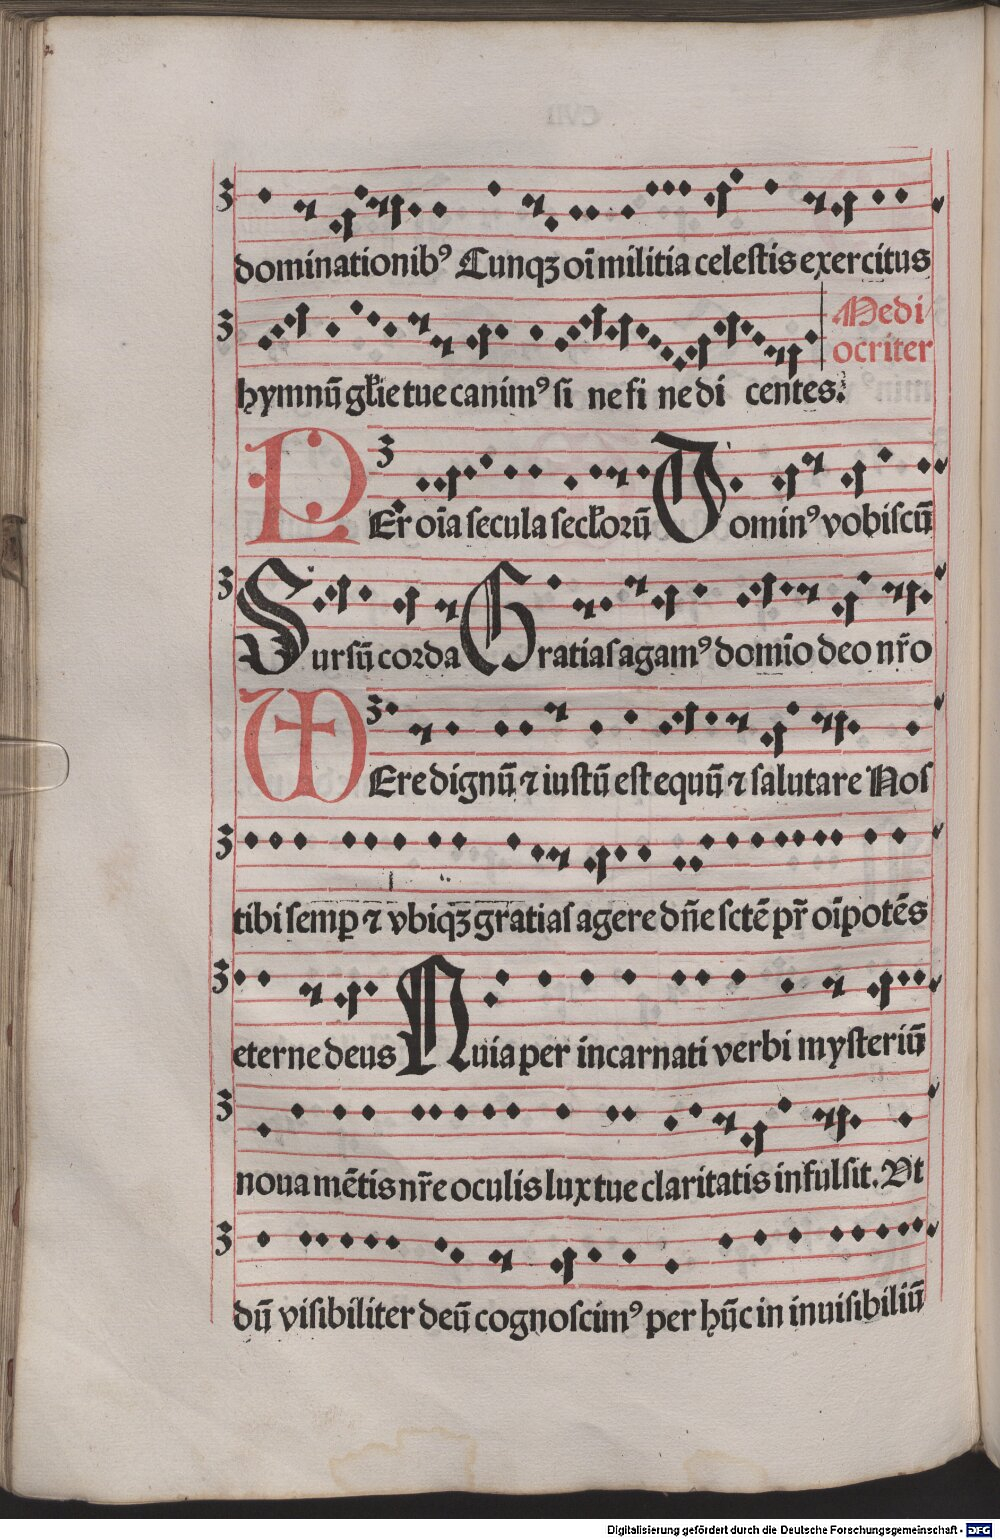 dominationibꝰ Cunqꝫ oı̄ militia celeſtis exercitus
hymnū gƚie tue canimꝰ ſi ne fi ne di centes.
Medi
ocriter
PEr oı̄a ſecula ſecƚorū Dominꝰ vobiſcū
Surſū corda Gratiaſ agamꝰ domı̄o deo nr̄o
VEre dignū ⁊ iuſtū eſt equū ⁊ ſalutare Nos
tibi ſemꝑ ⁊ vbiqꝫ gratiaſ agere dn̄e ſctē pr̄ oı̄potēs
eterne deus Quia per incarnati verbi myſteriū
noua mētis nr̄e oculis lux tue claritatis infulſit. Vt
dū viſibiliter deū cognoſcimꝰ per hūc in inuiſibiliū
Digitalisierung gefördert durch die Deutsche Forschungsgemeinschaft - DFG